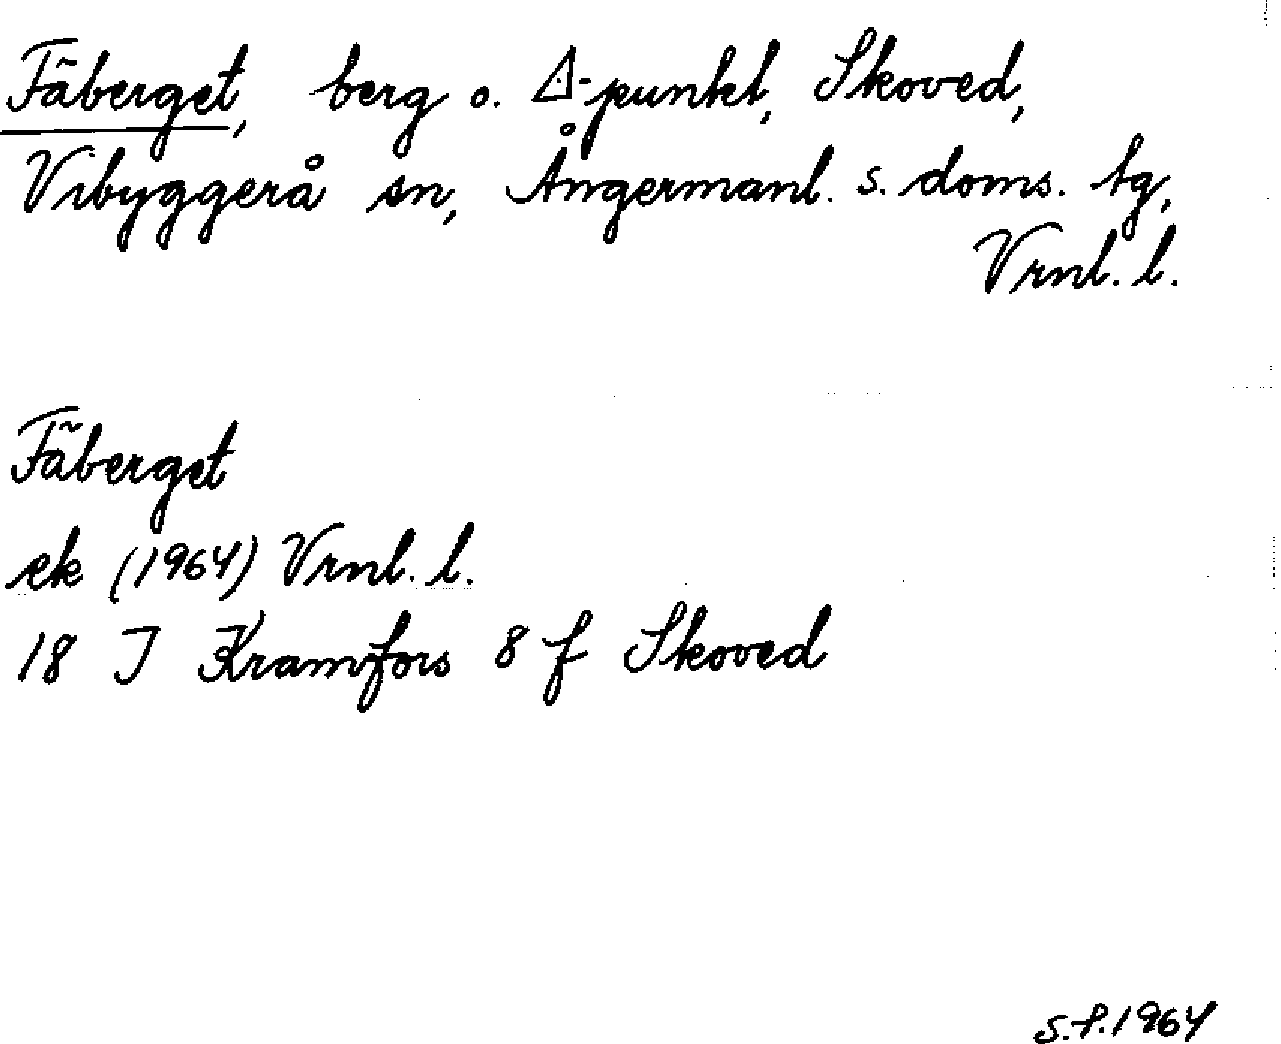 Fäberget, berg o. Δ-punkt, Skoved,
Vibyggerå sn, Ångermanl. s. doms. tg,
Vrnl. l.
Fäberget
ek (1964) Vrnl. l.
18 I Kramfors 8 f Skoved
S.f. 1964